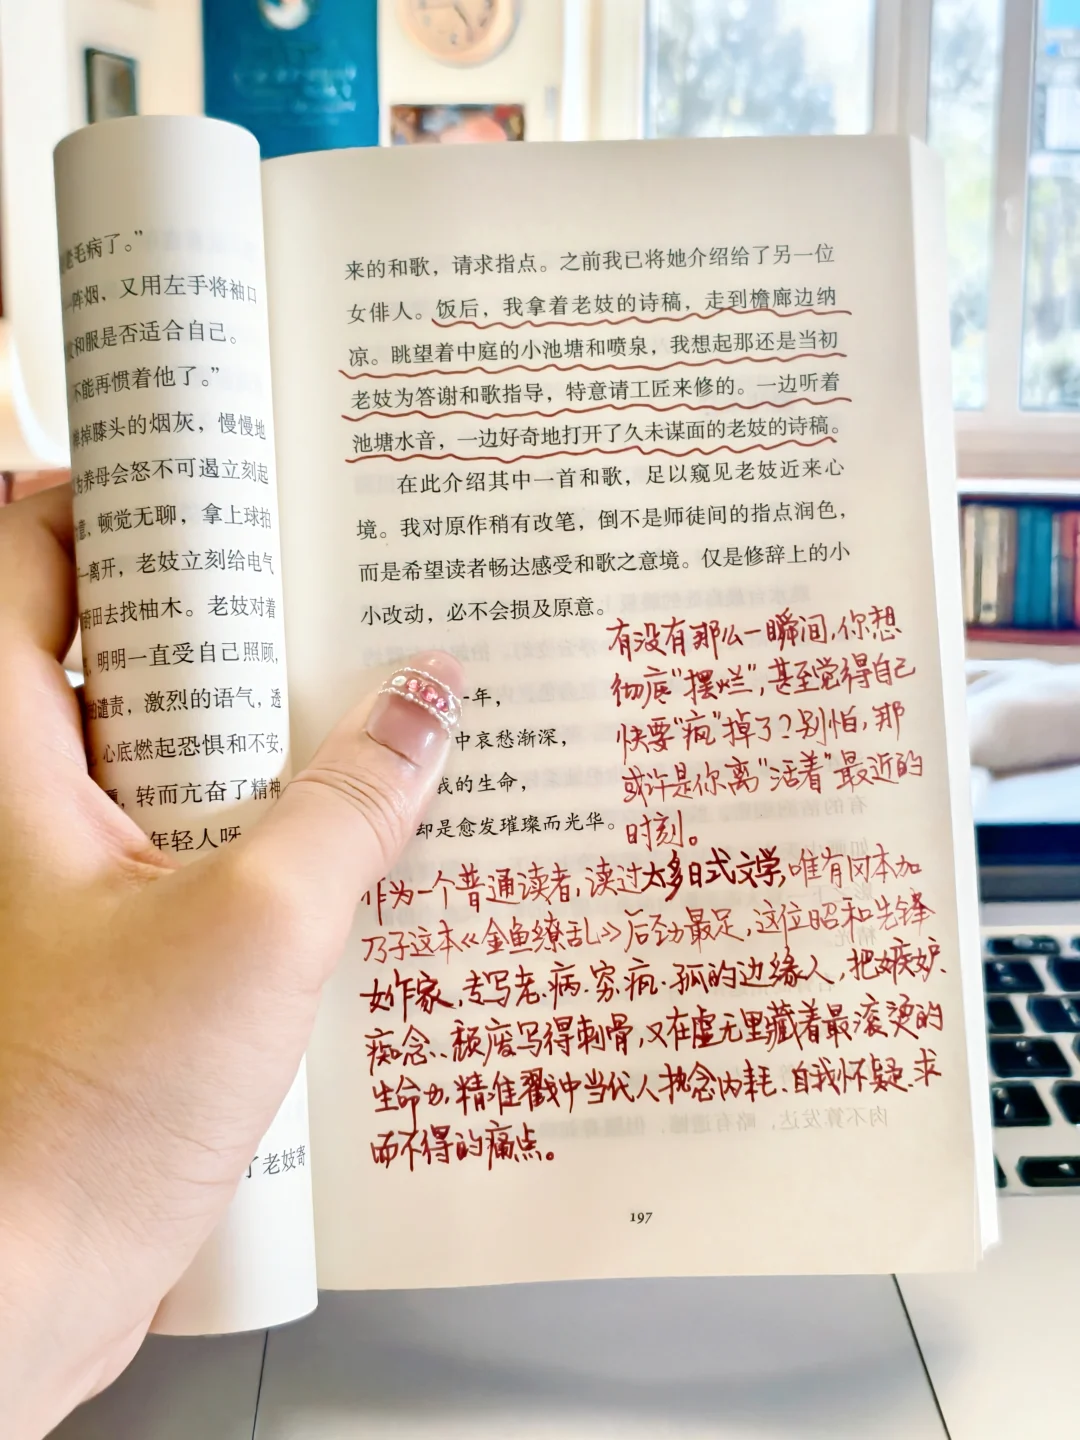 老毛病了。”
阵烟，又用左手将袖口
和服是否适合自己。
不能再惯着他了。”
掉膝头的烟灰，慢慢地
养母会怒不可遏立刻起
，顿觉无聊，拿上球拍
一离开，老妓立刻给电气
田去找柚木。老妓对着
，明明一直受自己照顾，
谴责，激烈的语气，透
心底燃起恐惧和不安，
，转而亢奋了精神
年轻人呀
了老妓寄
来的和歌，请求指点。之前我已将她介绍给了另一位
女俳人。饭后，我拿着老妓的诗稿，走到檐廊边纳
凉。眺望着中庭的小池塘和喷泉，我想起那还是当初
老妓为答谢和歌指导，特意请工匠来修的。一边听着
池塘水音，一边好奇地打开了久未谋面的老妓的诗稿。
在此介绍其中一首和歌，足以窥见老妓近来心
境。我对原作稍有改笔，倒不是师徒间的指点润色，
而是希望读者畅达感受和歌之意境。仅是修辞上的小
小改动，必不会损及原意。
年，
中哀愁渐深，
我的生命，
却是愈发璀璨而光华。
有没有那么一瞬间，你想
彻底“摆烂”，甚至觉得自己
快要“疯”掉了？别怕，那
或许是你离“活着”最近的
时刻。
作为一个普通读者，读过太多日式文学，唯有冈本加
乃子这本《金鱼缭乱》后劲最足，这位昭和先锋
女作家，专写老、病、穷、疯、孤的边缘人，把嫉妒、
痴念、颓废写得刺骨，又在虚无里藏着最滚烫的
生命力，精准戳中当代人执念内耗、自我怀疑、求
而不得的痛点。
197